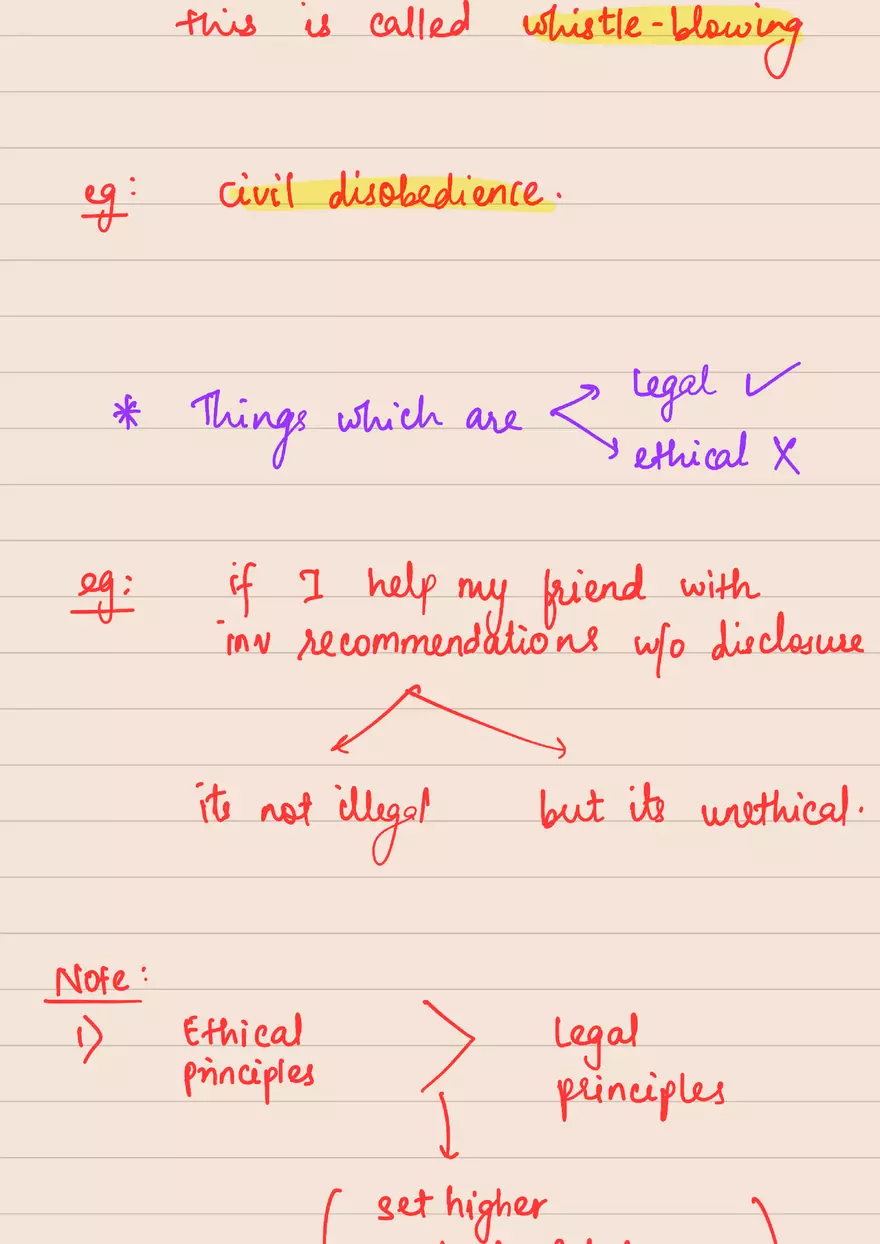 this is called whistle-blowing
eg: civil disobedience.
* Things which are
Legal ✓
ethical X
eg: if I help my friend with
inv recommendations w/o disclosure
its not illegal but its unethical.
Note:
1) Ethical principles > Legal principles
(set higher